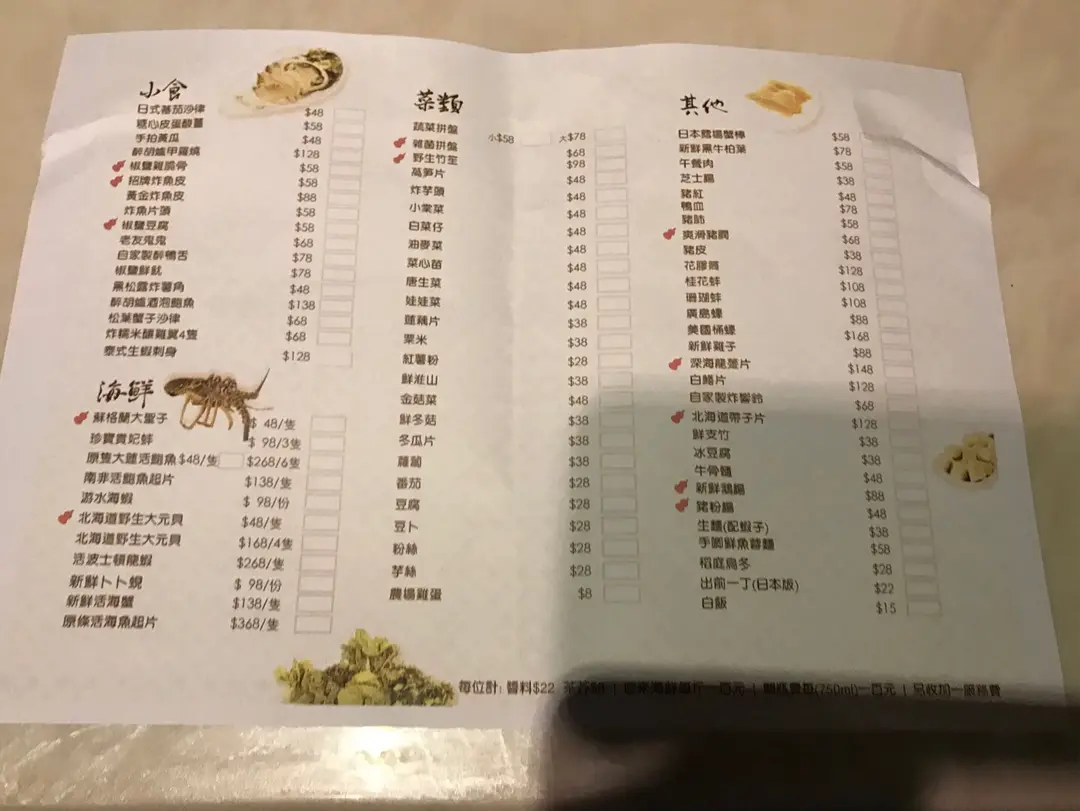 小食
日式蕃茄沙律 $48
糖心皮蛋酸薑 $58
手拍黃瓜 $48
醉胡蘆甲羅燒 $128
椒鹽雞脆骨 $58
招牌炸魚皮 $58
黃金炸魚皮 $88
炸魚片頭 $58
椒鹽豆腐 $58
老友鬼鬼 $68
自家製醉鴨舌 $78
椒鹽鮮魷 $78
黑松露炸薯角 $48
醉胡蘆酒泡鮑魚 $138
松葉蟹子沙律 $68
炸糯米釀雞翼4隻 $68
泰式生蝦刺身 $128
海鮮
蘇格蘭大聖子 $ 48/隻
珍寶貴妃蚌 $ 98/3隻
原隻大蓮活鮑魚 $48/隻 $268/6隻
南非活鮑魚起片 $138/隻
游水海蝦 $ 98/份
北海道野生大元貝 $48/隻
北海道野生大元貝 $168/4隻
活波士頓龍蝦 $268/隻
新鮮卜卜蜆 $ 98/份
新鮮活海蟹 $138/隻
原條活海魚起片 $368/隻
菜類
蔬菜拼盤 小$58 大$78
雜菌拼盤 $68
野生竹笙 $98
萵筍片 $48
炸芋頭 $48
小棠菜 $48
白菜仔 $48
油麥菜 $48
菜心苗 $48
唐生菜 $48
娃娃菜 $48
蓮藕片 $38
粟米 $38
紅薯粉 $28
鮮淮山 $38
金菇菜 $48
鮮冬菇 $38
冬瓜片 $38
蘿蔔 $38
番茄 $28
豆腐 $28
豆卜 $28
粉絲 $28
芋絲 $28
農場雞蛋 $8
其他
日本鱈場蟹棒 $58
新鮮黑牛柏葉 $78
午餐肉 $58
芝士腸 $38
豬紅 $48
鴨血 $78
豬肺 $58
爽滑豬膶 $68
豬皮 $38
花膠筒 $128
桂花蚌 $108
珊瑚蚌 $108
廣島蠔 $88
美國桶蠔 $168
新鮮雞子 $88
深海龍躉片 $148
白鱔片 $128
自家製炸響鈴 $68
北海道帶子片 $128
鮮支竹 $38
冰豆腐 $38
牛骨髓 $48
新鮮鵝腸 $88
豬粉腸 $48
生麵(配蝦子) $38
手唧鮮魚蓉麵 $58
稻庭烏冬 $28
出前一丁(日本版) $22
白飯 $15
每位計: 醬料$22 茶芥$8 | 自來海鮮每斤一百元 | 開瓶費每(750ml)一百元 | 另收加一服務費